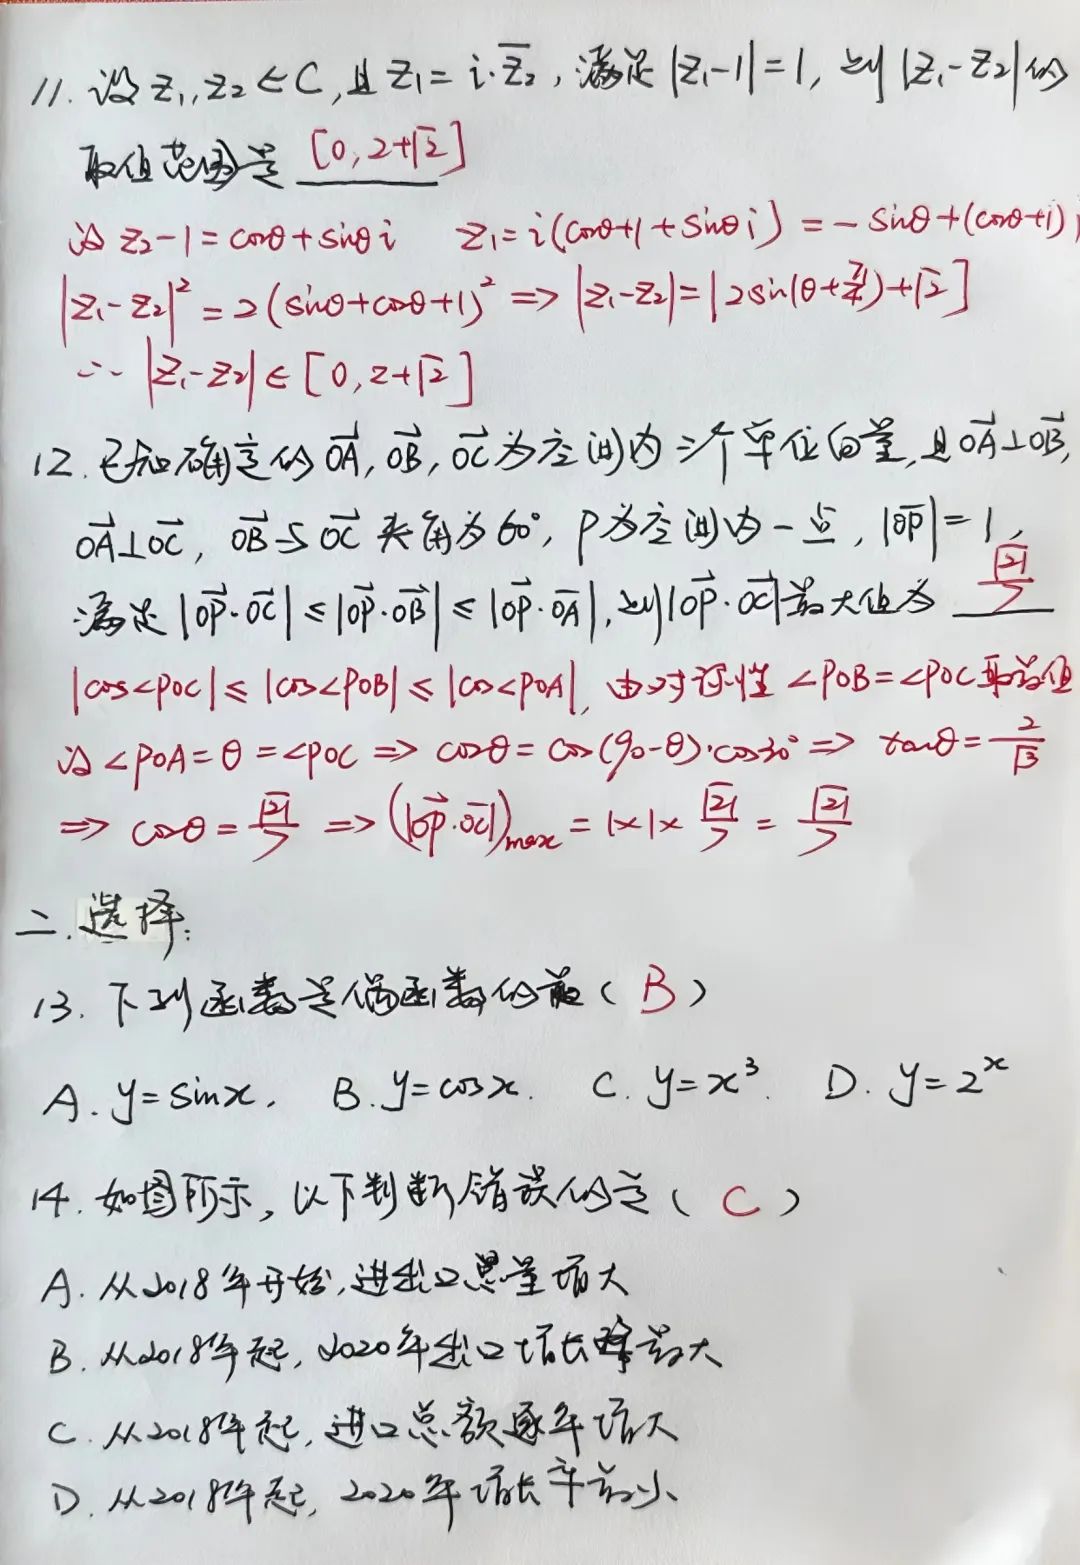 11. 设 z₁, z₂ ∈ C, 且 z₁ = i·z̅₂, 满足 |z₁-1| = 1, 则 |z₁-z₂| 的
取值范围是 [0, 2+√2]
设 z₂-1 = cosθ + sinθ i z₁ = i(cosθ+1+sinθ i) = -sinθ+(cosθ+1)i
|z₁-z₂|² = 2(sinθ+cosθ+1)² => |z₁-z₂| = |2sin(θ+π/4)+√2]
∴ |z₁-z₂| ∈ [0, 2+√2]
12. 已知确定的 OA→, OB→, OC→ 为空间内三个单位向量, 且 OA→⊥OB→,
OA→⊥OC→, OB→与OC→夹角为60°, P为空间内一点, |OP→| = 1,
满足 |OP→·OC→| ≤ |OP→·OB→| ≤ |OP→·OA→|, 则|OP→·OC→|最大值为 √21/7
|cos<POC| ≤ |cos<POB| ≤ |cos<POA|, 由对称性 <POB=<POC 取最值
设 <POA = θ = <POC => cosθ = cos(90-θ)·cos30° => tanθ = 2/√3
=> cosθ = √21/7 => (|OP→·OC→|)max = 1×1×√21/7 = √21/7
二. 选择:
13. 下列函数是偶函数的是 ( B )
A. y=sinx. B. y=cosx. C. y=x³. D. y=2ˣ
14. 如图所示, 以下判断错误的是 ( C )
A. 从2018年开始, 进出口总量增大
B. 从2018年起, 2020年出口增长率最大
C. 从2018年起, 进口总额逐年增大
D. 从2018年起, 2020年增长率最小